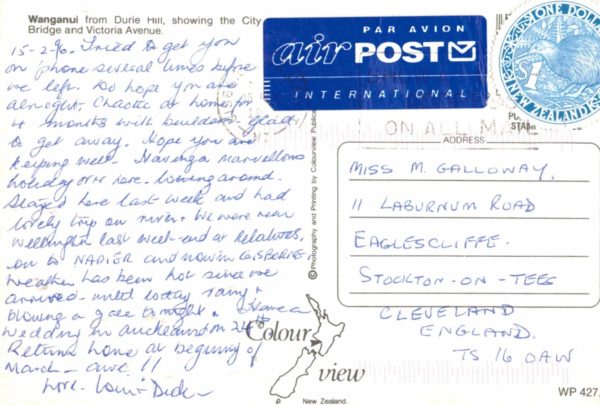 Wanganui from Durie Hill, showing the City
Bridge and Victoria Avenue.
15-2-96. Tried to get you
on phone several times before
we left. Do hope you are
alright. Chaotic at home for
4 months with builders glad
to get away. Hope you are
keeping well. Having a marvellous
holiday over here. touring around.
Stayed here last week and had
lovely trip on river. We were near
Wellington last week-end at Relatives,
on to NAPIER and now in GISBORNE.
Weather has been hot since we
arrived until today rainy &
blowing a gale tonight. Have a
wedding in Auckland on 24th
Return home at beginning of
March
Love
Dick
PAR AVION
air POST
INTERNATIONAL
ONE DOLLAR
$1
NEW ZEALAND
ON ALL MAIL
STAMP
ADDRESS
MISS M. GALLOWAY,
11 LABURNUM ROAD
EAGLESCLIFFE.
STOCKTON-ON-TEES
CLEVELAND
ENGLAND.
TS 16 0AW
© Photography and Printing by Colourview Publications
Colour
view
New Zealand.
WP 427